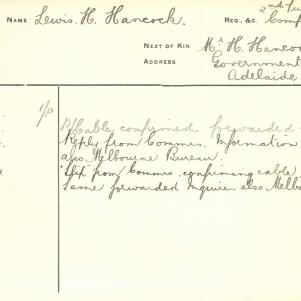 NAME Lewis. H. Hancock. REG., &C. 2nd
NEXT OF KIN Mr H. Hancoc
ADDRESS Government
Adelaide
1/P
Cable confirmed. forwarded
Reply from Commis. Information
also Melbourne Bureau.
from Commis. confirming cable
Same forwarded Inquirer also Melbo